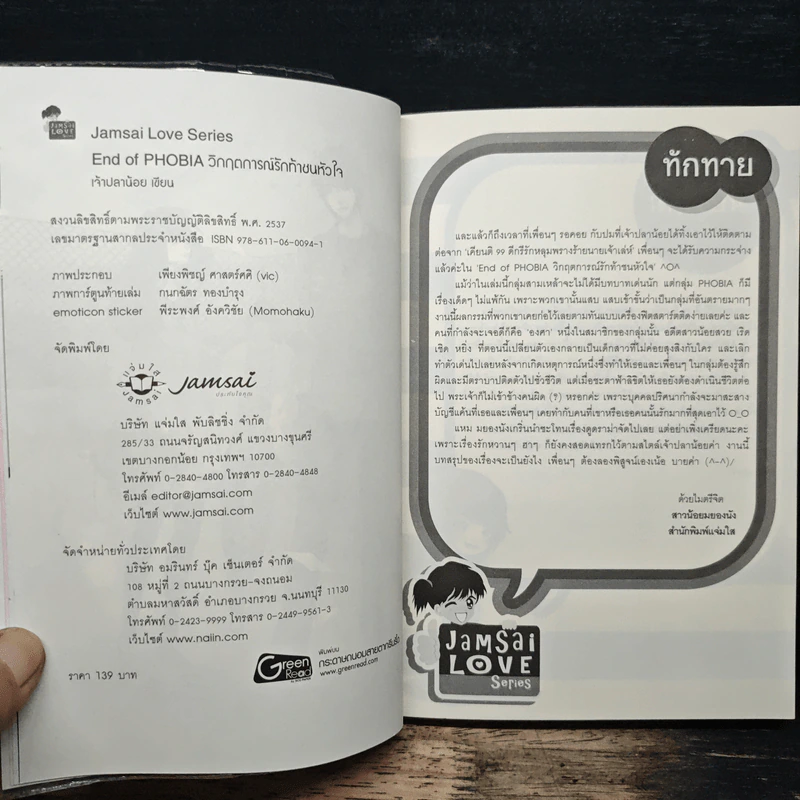 JAMSAI
LOVE
Jamsai Love Series
End of PHOBIA วิกฤตการณ์รักท้าชนหัวใจ
เจ้าปลาน้อย เขียน
สงวนลิขสิทธิ์ตามพระราชบัญญัติลิขสิทธิ์ พ.ศ. 2537
เลขมาตรฐานสากลประจำหนังสือ ISBN 978-611-06-0094-1
ภาพประกอบ เพียงพิชญ์ ศาสตร์ศศิ (vic)
ภาพการ์ตูนท้ายเล่ม กนกฉัตร ทองบำรุง
emoticon sticker พีระพงศ์ อังควิชัย (Momohaku)
จัดพิมพ์โดย
แจ่มใส
Jamsai
Jamsai
ประทับใจคุณ
บริษัท แจ่มใส พับลิชชิ่ง จำกัด
285/33 ถนนจรัญสนิทวงศ์ แขวงบางขุนศรี
เขตบางกอกน้อย กรุงเทพฯ 10700
โทรศัพท์ 0-2840-4800 โทรสาร 0-2840-4848
อีเมล์ editor@jamsai.com
เว็บไซต์ www.jamsai.com
จัดจำหน่ายทั่วประเทศโดย
บริษัท อมรินทร์ บุ๊ค เซ็นเตอร์ จำกัด
108 หมู่ที่ 2 ถนนบางกรวย-จงถนอม
ตำบลมหาสวัสดิ์ อำเภอบางกรวย จ.นนทบุรี 11130
โทรศัพท์ 0-2423-9999 โทรสาร 0-2449-9561-3
เว็บไซต์ www.naiin.com
ราคา 139 บาท
Green
Read
พิมพ์บน
กระดาษถนอมสายตากรีนรี้ด
www.greenread.com
ทักทาย
และแล้วก็ถึงเวลาที่เพื่อนๆ รอคอย กับปมที่เจ้าปลาน้อยได้ทิ้งเอาไว้ให้ติดตาม
ต่อจาก 'เคียนติ 99 ดีกรีรักหลุมพรางร้ายนายเจ้าเล่ห์' เพื่อนๆ จะได้รับความกระจ่าง
แล้วค่ะใน 'End of PHOBIA วิกฤตการณ์รักท้าชนหัวใจ' ^O^
แม้ว่าในเล่มนี้กลุ่มสามเหล้าจะไม่ได้มีบทบาทเด่นนัก แต่กลุ่ม PHOBIA ก็มี
เรื่องเด็ดๆ ไม่แพ้กัน เพราะพวกเขานั้นแสบ แสบเข้าขั้นว่าเป็นกลุ่มที่อันตรายมากๆ
งานนี้ผลกรรมที่พวกเขาเคยก่อไว้เลยตามทันแบบเครื่องฟิตสตาร์ตติดง่ายเลยค่ะ และ
คนที่กำลังจะเจอดีก็คือ 'องศา' หนึ่งในสมาชิกของกลุ่มนั้น อดีตสาวน้อยสวย เริด
เชิด หยิ่ง ที่ตอนนี้เปลี่ยนตัวเองกลายเป็นเด็กสาวที่ไม่ค่อยสุงสิงกับใคร และเลิก
ทำตัวเด่นไปเลยหลังจากเกิดเหตุการณ์หนึ่งซึ่งทำให้เธอและเพื่อนๆ ในกลุ่มต้องรู้สึก
ผิดและมีตราบาปติดตัวไปชั่วชีวิต แต่เมื่อชะตาฟ้าลิขิตให้เธอยังต้องดำเนินชีวิตต่อ
ไป พระเจ้าก็ไม่เข้าข้างคนผิด (?) หรอกค่ะ เพราะบุคคลปริศนากำลังจะมาสะสาง
บัญชีแค้นที่เธอและเพื่อนๆ เคยทำกับคนที่เขาหรือเธอคนนั้นรักมากที่สุดเอาไว้ O_O
แหม มยองนังเกริ่นนำซะโทนเรื่องดูดราม่าจัดไปเลย แต่อย่าเพิ่งเครียดนะคะ
เพราะเรื่องรักหวานๆ ฮาๆ ก็ยังคงสอดแทรกไว้ตามสไตล์เจ้าปลาน้อยค่า งานนี้
บทสรุปของเรื่องจะเป็นยังไง เพื่อนๆ ต้องลองพิสูจน์เองเน้อ บายค่า (^-^)/
ด้วยไมตรีจิต
สาวน้อยมยองนัง
สำนักพิมพ์แจ่มใส
JAMSAI
LOVE
Series